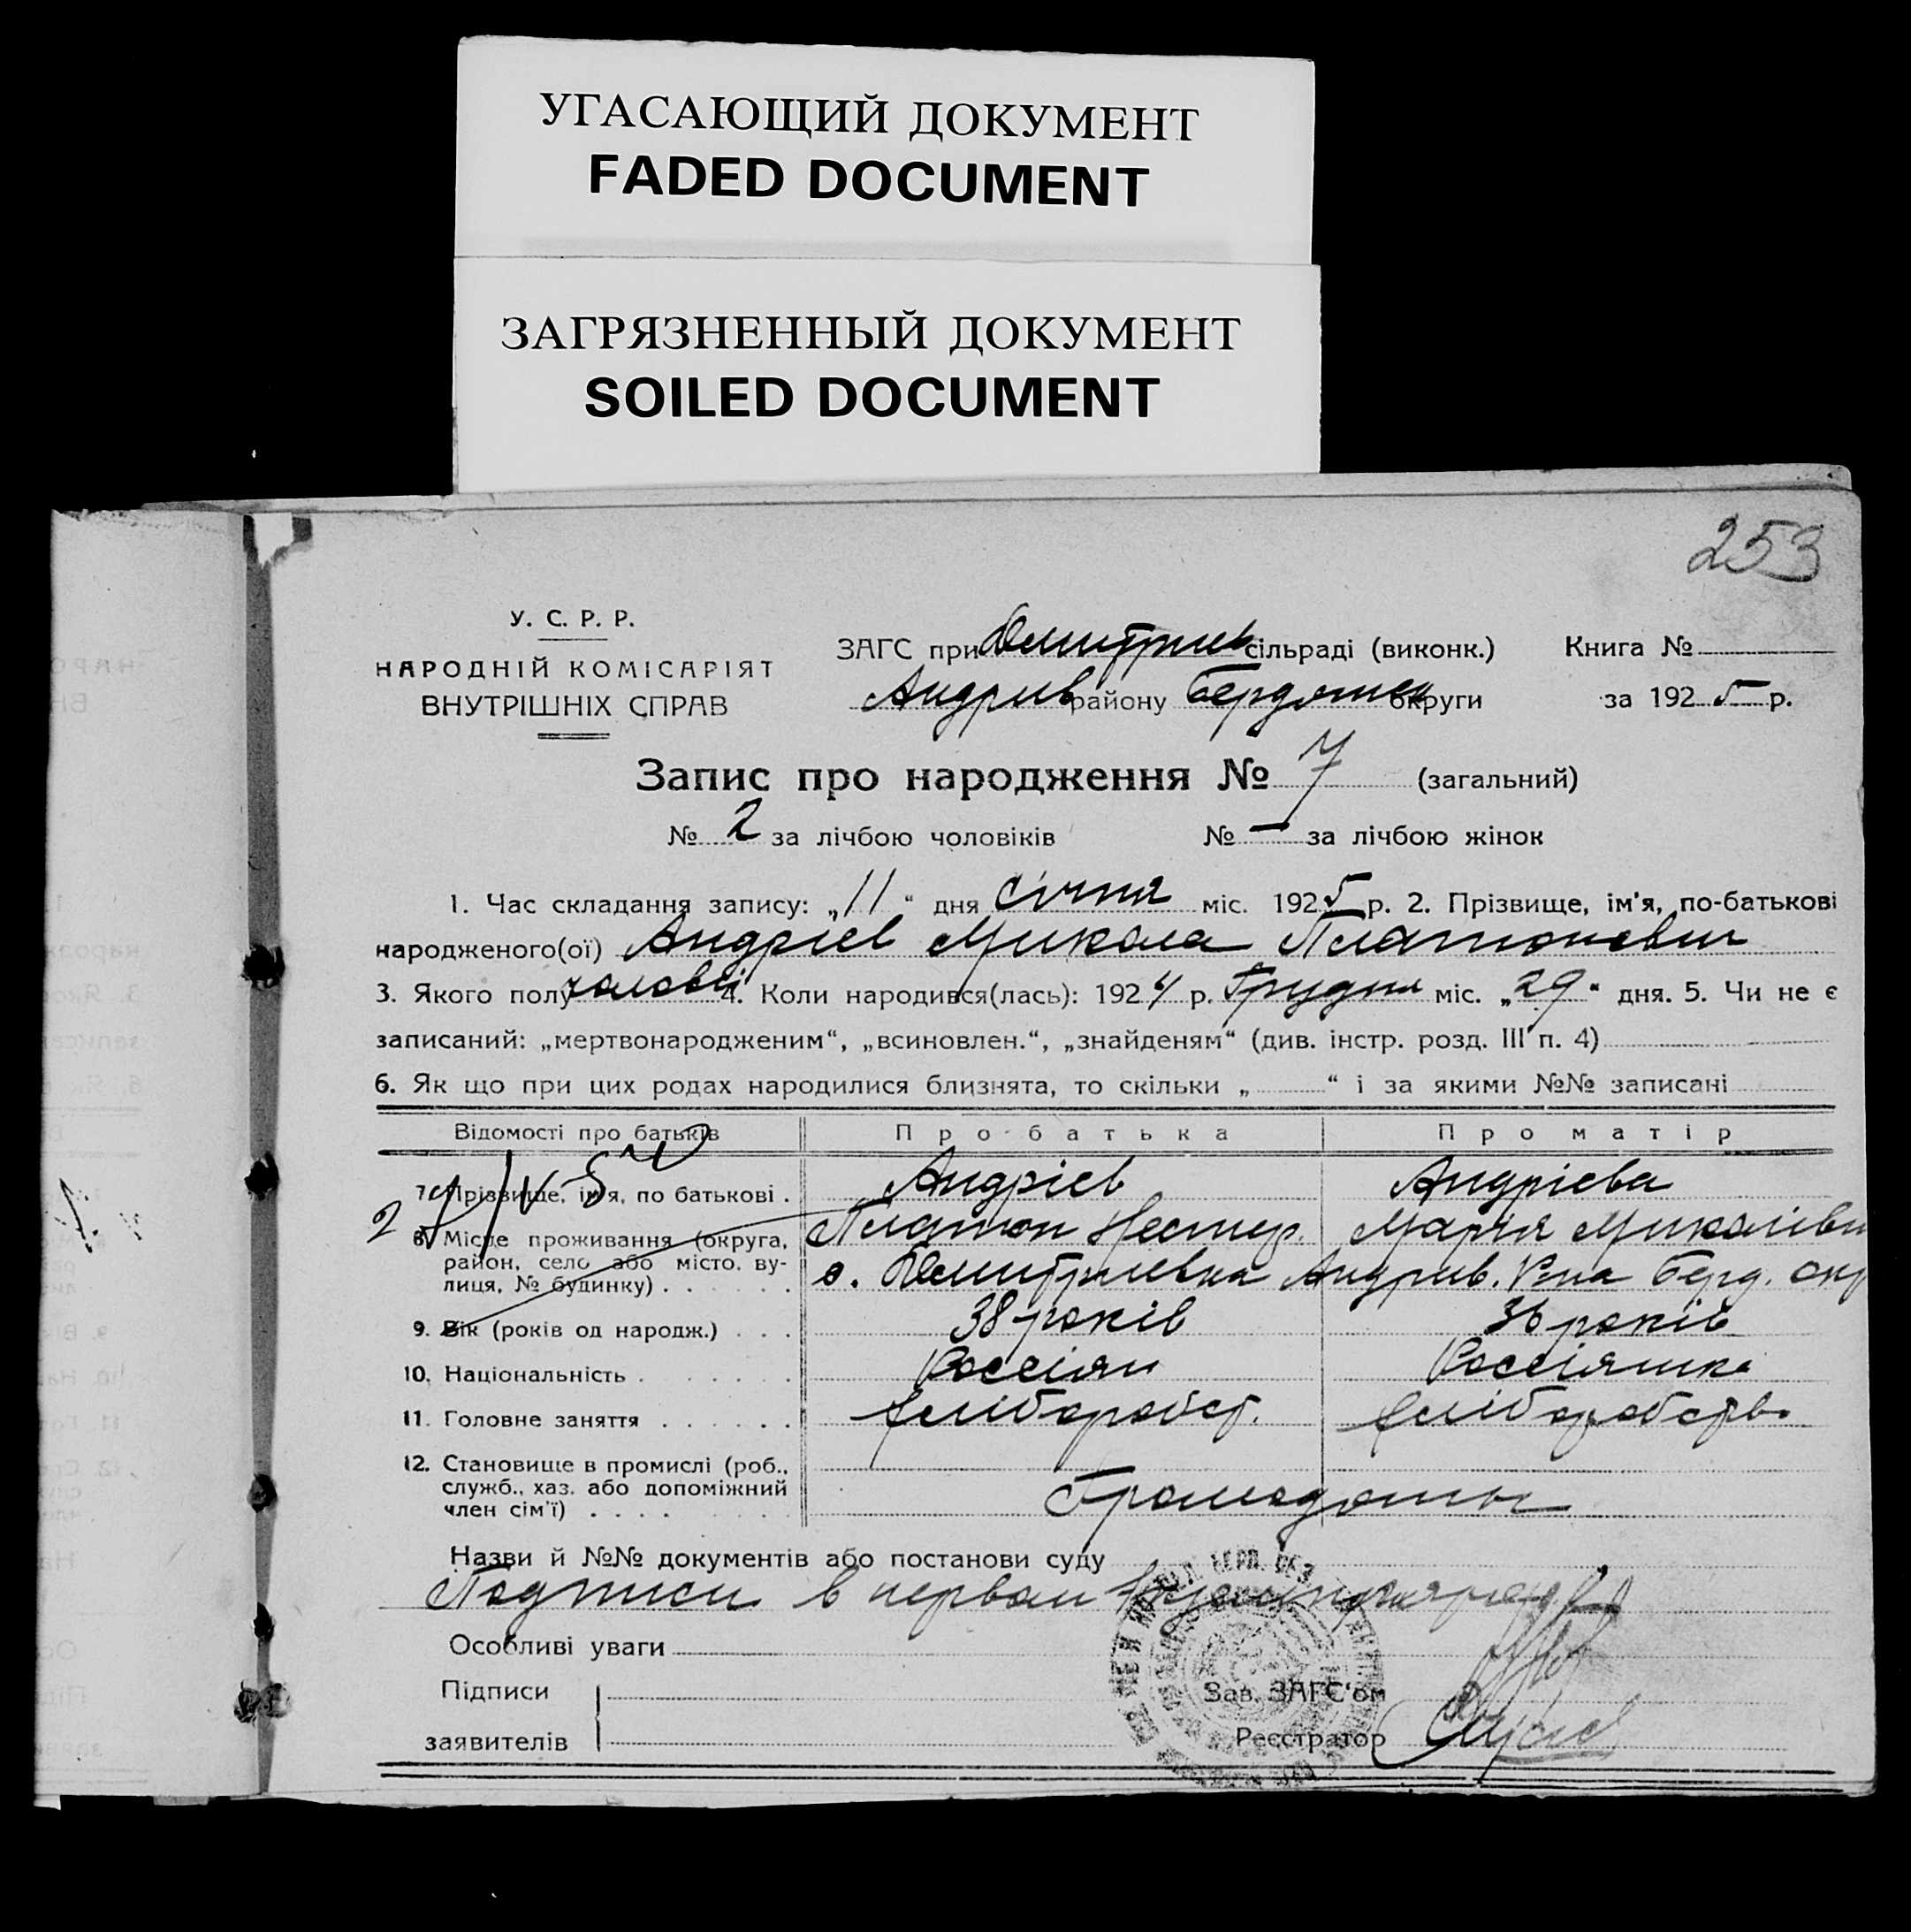 УГАСАЮЩИЙ ДОКУМЕНТ
FADED DOCUMENT
ЗАГРЯЗНЕННЫЙ ДОКУМЕНТ
SOILED DOCUMENT
253
У. С. Р. Р.
НАРОДНІЙ КОМІСАРІЯТ
ВНУТРІШНІХ СПРАВ
ЗАГС при Дмитрив сільраді (виконк.)
Андрив району Бердянськ округи
Книга №
за 1925 р.
Запис про народження № 7 (загальний)
№ 2 за лічбою чоловіків № — за лічбою жінок
1. Час складання запису: „11“ дня Січня міс. 1925 р. 2. Прізвище, ім'я, по-батькові
народженого(ої) Андрієв Микола Платонович
3. Якого полу чоловічі 4. Коли народився(лась): 1924 р. Грудня міс. „29“ дня. 5. Чи не є
записаний: „мертвонародженим“, „всиновлен.“, „знайденям“ (див. інстр. розд. III п. 4)
6. Як що при цих родах народилися близнята, то скільки „ “ і за якими №№ записані
Відомості про батьків Про батька Про матір
7. Прізвище, ім'я, по батькові . Андрієв Андрієва
Платон Нестер. Марія Миколівн
8. Місце проживання (округа,
район, село або місто, ву-
лиця, № будинку) . . . . . . с. Дмитриевка Андрив. Р-на Берд. окр
9. Вік (років од народж.) . . . 38 років 36 років
10. Національність . . . . . . . Россіян Россіянка
11. Головне заняття . . . . . . хліборобст. хліборобств.
12. Становище в промислі (роб.,
служб., хаз. або допоміжний
член сім'ї) . . . .
Назви й №№ документів або постанови суду
Подписи в первом
Особливі уваги
Підписи
заявителів
Зав. ЗАГС'ом
Реєстратор